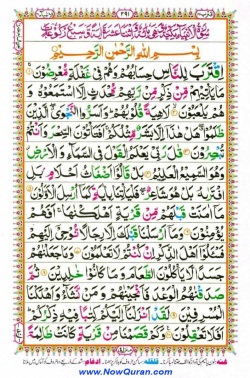 ۲۹۱
بِسْمِ اللّٰهِ الرَّحْمٰنِ الرَّحِيْمِ
اِقْتَرَبَ لِلنَّاسِ حِسَابُهُمْ وَهُمْ فِيْ غَفْلَةٍ مُّعْرِضُوْنَ
مَا يَاْتِيْهِمْ مِّنْ ذِكْرٍ مِّنْ رَّبِّهِمْ مُّحْدَثٍ اِلَّا اسْتَمَعُوْهُ وَ
هُمْ يَلْعَبُوْنَ لَاهِيَةً قُلُوْبُهُمْ وَاَسَرُّوا النَّجْوَى الَّذِيْنَ
ظَلَمُوْا هَلْ هٰذَا اِلَّا بَشَرٌ مِّثْلُكُمْ اَفَتَاْتُوْنَ السِّحْرَ وَاَنْتُمْ
تُبْصِرُوْنَ قٰلَ رَبِّيْ يَعْلَمُ الْقَوْلَ فِي السَّمَآءِ وَالْاَرْضِ
وَهُوَ السَّمِيْعُ الْعَلِيْمُ بَلْ قَالُوْٓا اَضْغَاثُ اَحْلَامٍ بَلِ
افْتَرٰىهُ بَلْ هُوَ شَاعِرٌ فَلْيَاْتِنَا بِاٰيَةٍ كَمَآ اُرْسِلَ الْاَوَّلُوْنَ
مَآ اٰمَنَتْ قَبْلَهُمْ مِّنْ قَرْيَةٍ اَهْلَكْنٰهَا اَفَهُمْ
يُؤْمِنُوْنَ وَمَآ اَرْسَلْنَا قَبْلَكَ اِلَّا رِجَالًا نُّوْحِيْٓ اِلَيْهِمْ
فَسْـَٔلُوْٓا اَهْلَ الذِّكْرِ اِنْ كُنْتُمْ لَا تَعْلَمُوْنَ وَمَا جَعَلْنٰهُمْ
جَسَدًا لَّا يَاْكُلُوْنَ الطَّعَامَ وَمَا كَانُوْا خٰلِدِيْنَ ثُمَّ
صَدَقْنٰهُمُ الْوَعْدَ فَاَنْجَيْنٰهُمْ وَمَنْ نَّشَآءُ وَاَهْلَكْنَا
الْمُسْرِفِيْنَ لَقَدْ اَنْزَلْنَآ اِلَيْكُمْ كِتٰبًا فِيْهِ ذِكْرُكُمْ
اَفَلَا تَعْقِلُوْنَ وَكَمْ قَصَمْنَا مِنْ قَرْيَةٍ كَانَتْ ظَالِمَةً
www.NowQuran.com